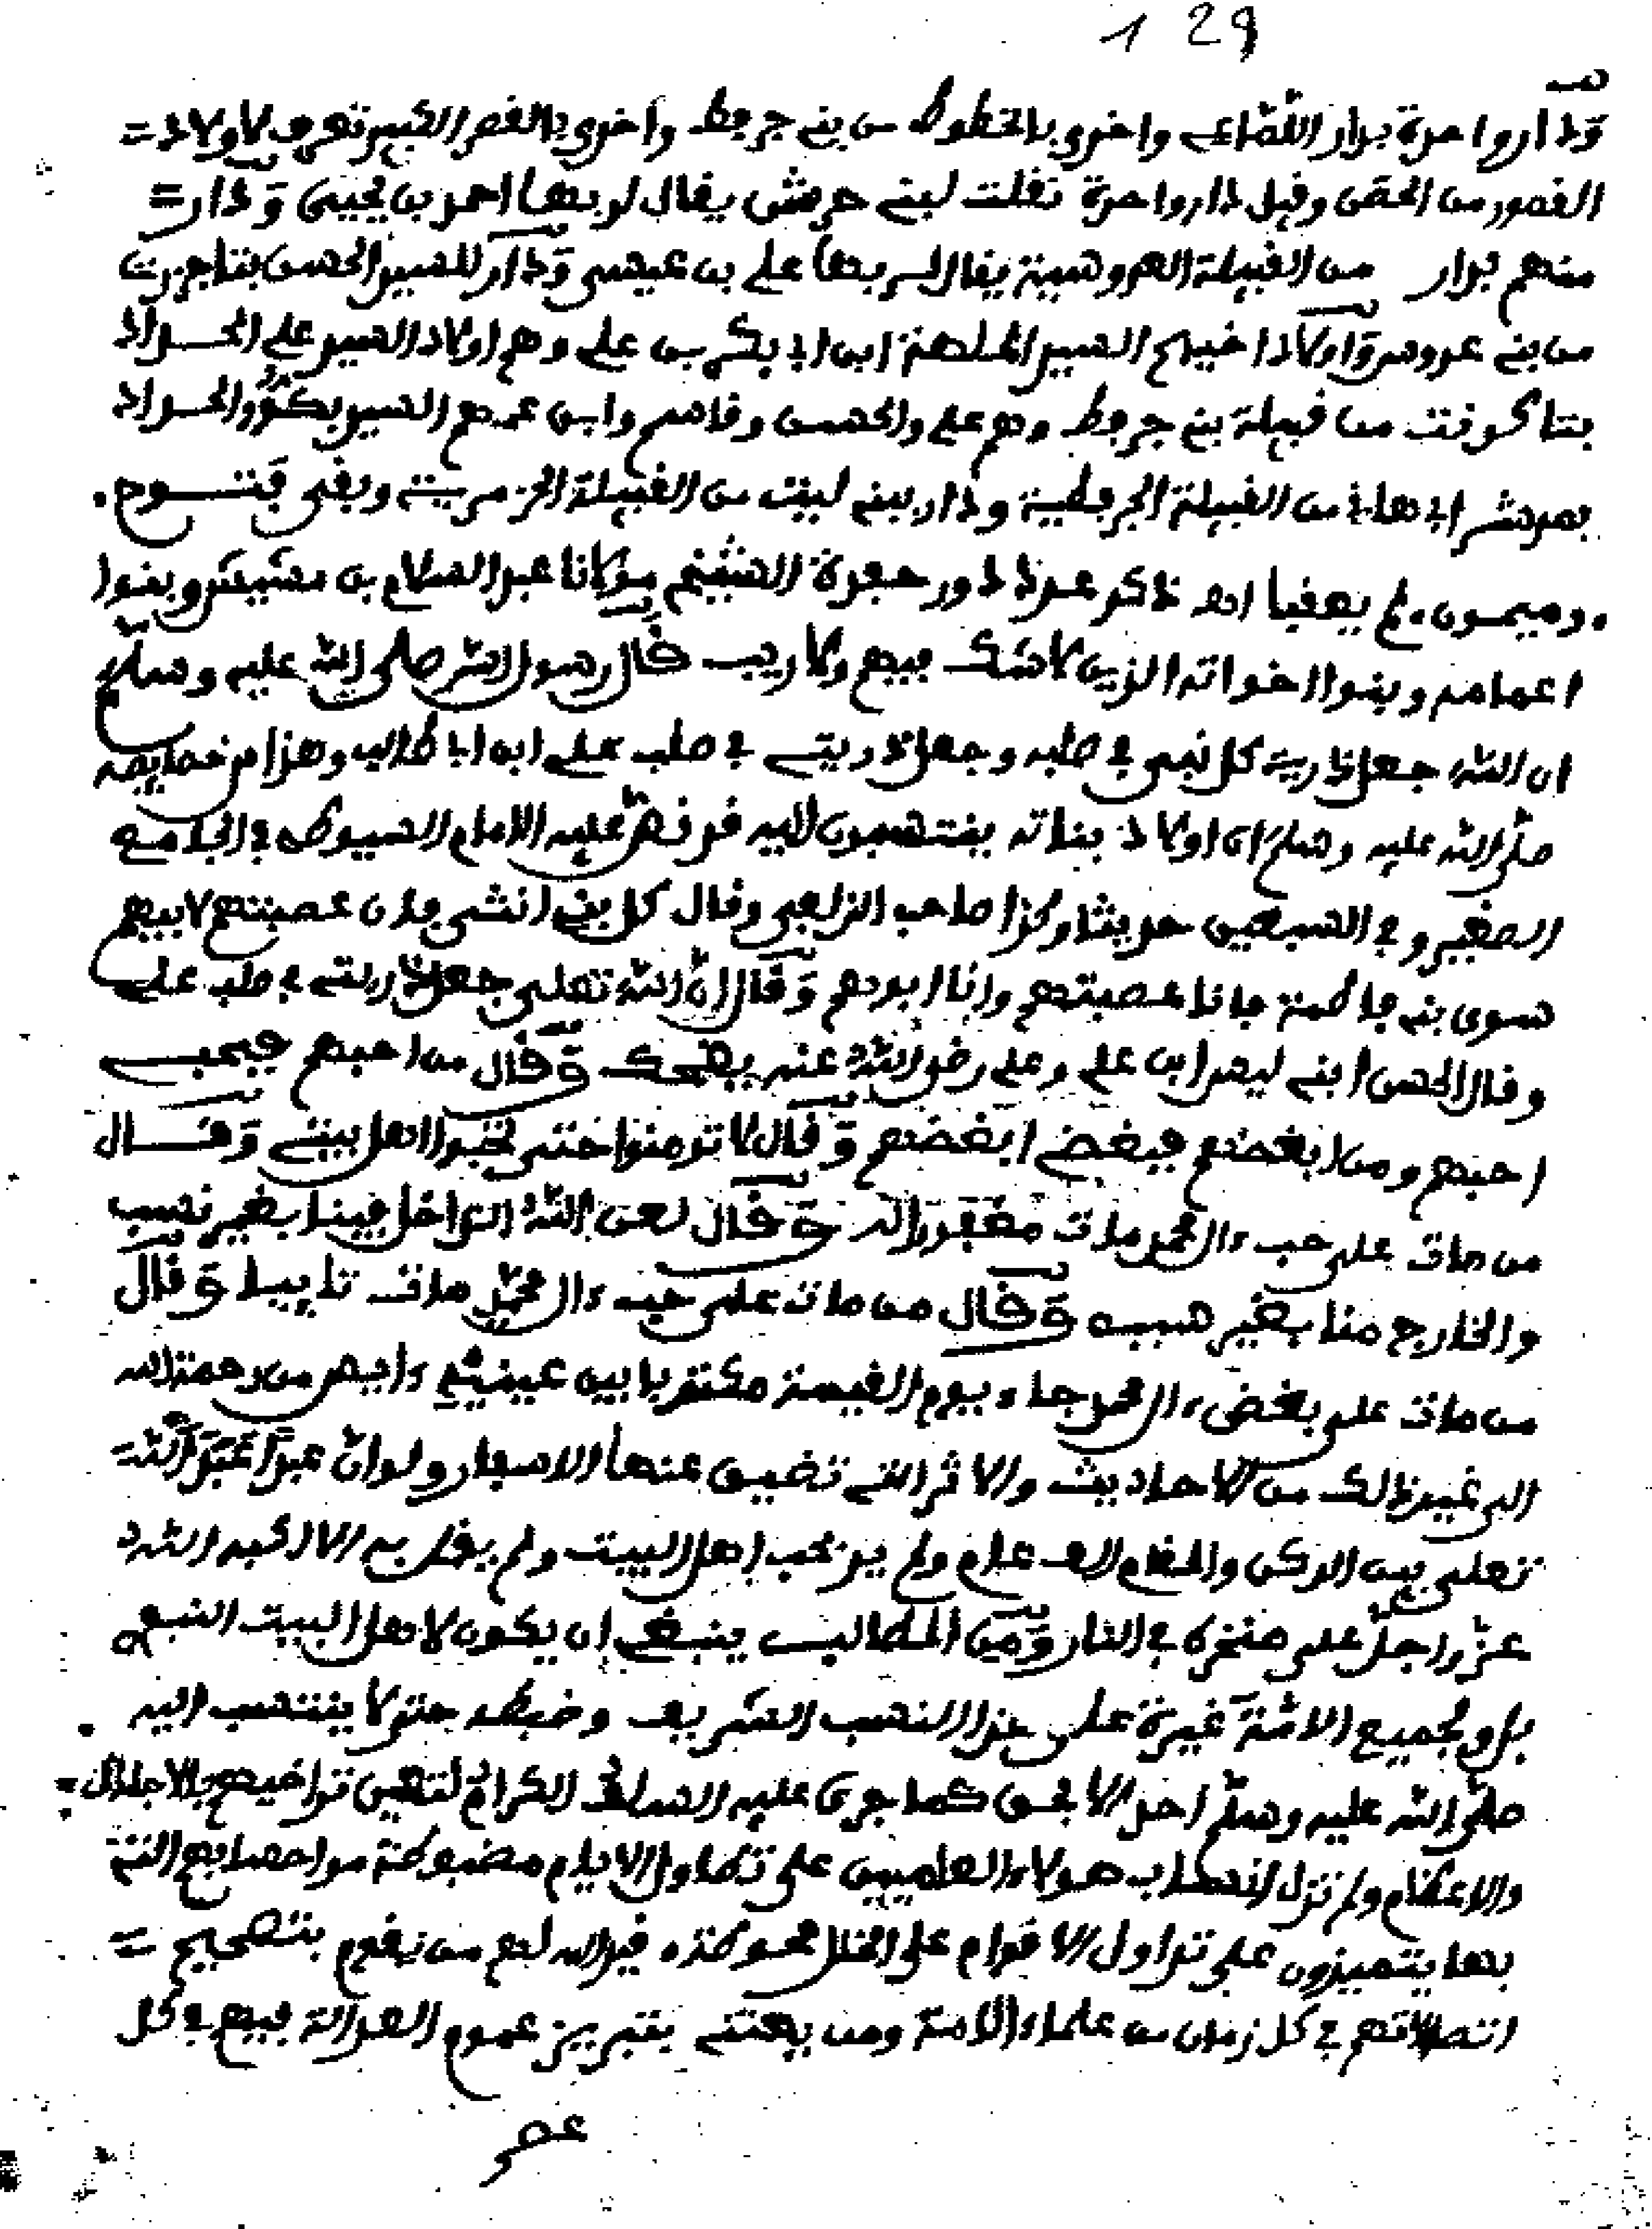 129
ودار واحدة بدار القضاعي واخرى بالخطوط من بني جرفط واخرى بالقصر الكبير تعرف لاولاد
القصور من الحصن وقيل دار واحدة نقلت لبني حرمش يقال لربها احمد بن يحيى ودار
منهم بدار من القبيلة العروسية يقال لربها علي بن عيسى ودار للسيد الحسن بتاجزرت
من بني عروس واولاد اخيهم السيد ابن ابي بكر بن علي وهم اولاد السيد علي الحراد
من قبيلة بني جرفط وهم علي والحسن وقاسم وابن عمهم السيد بكور الحراد
من القبيلة الجرفطية ودار بينه لبيت من القبيلة المزمرية وبقي فتوح
وميمون لم يعقبا اهـ ذكر عدد دور حفدة الشيخ مولانا عبد السلام بن مشيش وبنوا
اعمامه وبنوا اخواته الذين لا شك فيهم ولا ريب قال رسول الله صلى الله عليه وسلم
ان الله جعل ذرية كل نبي في صلبه وجعل ذريتي في صلب علي ابن ابا طالب وهذا من خصايصه
صلى الله عليه وسلم ان اولاد بناته ينتسبون اليه قد نص عليه الامام السيوطي في الجامع
الصغير وفي السبعين حديثا وكذا صاحب الزلعبي وقال كل بني انثى فان عصبتهم لابيهم
سوى بني فاطمة فانا عصبتهم وانا ابوهم وقال ان الله تعلى جعل ذريتي في صلب علي
وقال الحسن ابني ليس ابن علي وعلي رضي الله عنه يضحك وقال من احبهم فبحبي
احبهم ومن ابغضهم فببغضي ابغضهم وقال لا تومنوا حتى تحبوا اهل بيتي وقال
من مات على حب ءال محمد مات مغفورا له وقال لعن الله الداخل فينا بغير نسب
والخارج منا بغير سبب وقال من مات على حب ءال محمد مات تايبا وقال
من مات على بغض ءال محمد جاء يوم القيمة مكتوبا بين عينيه ءايس من رحمة الله
الى غير ذالك من الاحاديث والاثر التي تضيق عنها الاسفار ولو ان عبدا عبد الله
تعلى بين الركن والمقام الف عام ولم يد بحب اهل البيت ولم يقل به الا اكبه الله
عز وجل على منخره في النار ومن المطالب ينبغي ان يكون لاهل البيت النبوي
بل ولجميع الامة غيرة على هذا النسب الشريف وضبطه حتى لا ينتسب اليه
صلى الله عليه وسلم احد الا بحق كما جرى عليه السلف الكرام لتعين تواضيهم بالاجلال
والاعظام ولم تزل انساب هولاء الفاطميين على تطاول الايام مضبوطة واحسابهم التي
بها يتميزون على تداول الاقوام على الخلل محوطة قيد الله لهم من يقوم بتصحيح
اتصالاتهم في كل زمان من علماء الامة ومن يعتني بتبريز عموم العدالة فيهم في كل
عصر